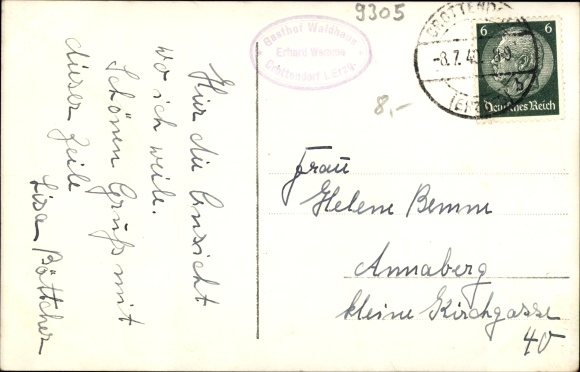 Hier die Ansicht
wo ich weile.
Schönen Gruß mit
dieser Zeile
Lisa Böttcher
Gasthof Waldhaus
Erhard
Crottendorf i. Erzg.
9305
8,-
CROTTEND
-8.7.40
(ERZ
b
6 6
Deutsches Reich
Frau
Helene Bemme
Annaberg
kleine Kirchgasse
40